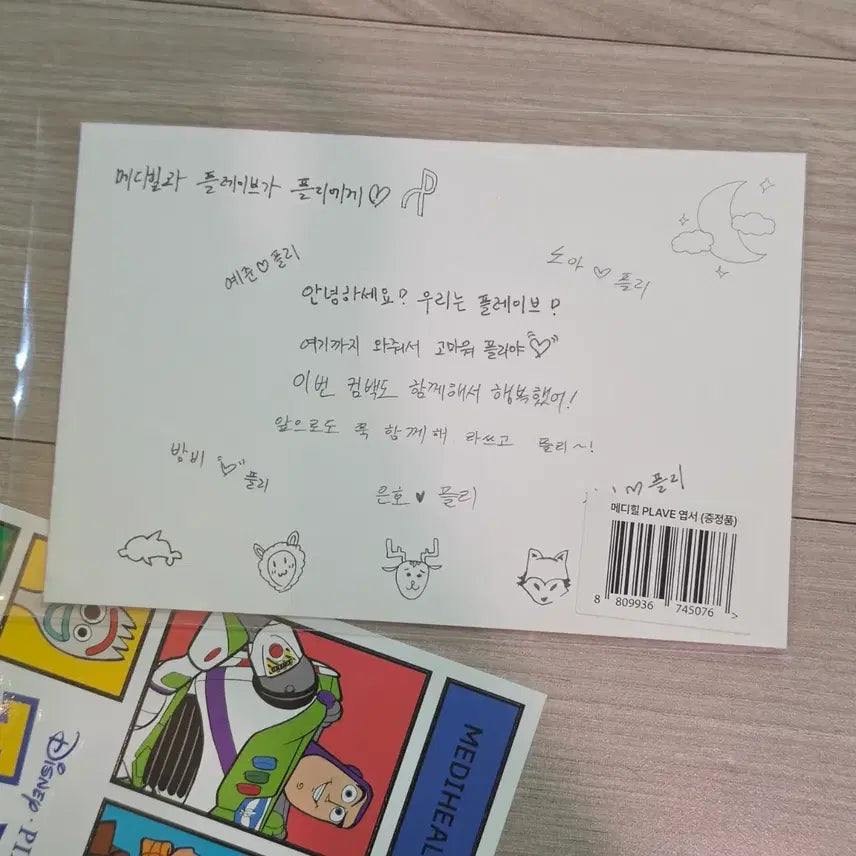 메디힐과 플레이브가 플리에게♡
예준♡플리
노아♡플리
안녕하세요? 우리는 플레이브?
여기까지 와줘서 고마워 플리야♡
이번 컴백도 함께해서 행복했어!
앞으로도 쭉 함께해 라쓰고 플리~!
밤비♡플리
은호♥플리
플리
메디힐 PLAVE 엽서 (증정품)
8 809936 745076 >
MEDIHEAL
DISNEY·PI